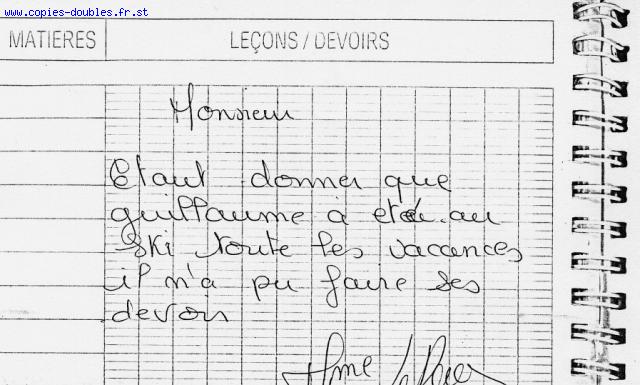 www.copies-doubles.fr.st
MATIERES
LEÇONS / DEVOIRS
Monsieur
Etant donner que
guillaume à été au
ski toute les vacances
il n'a pu faire ses
devoirs
Mme